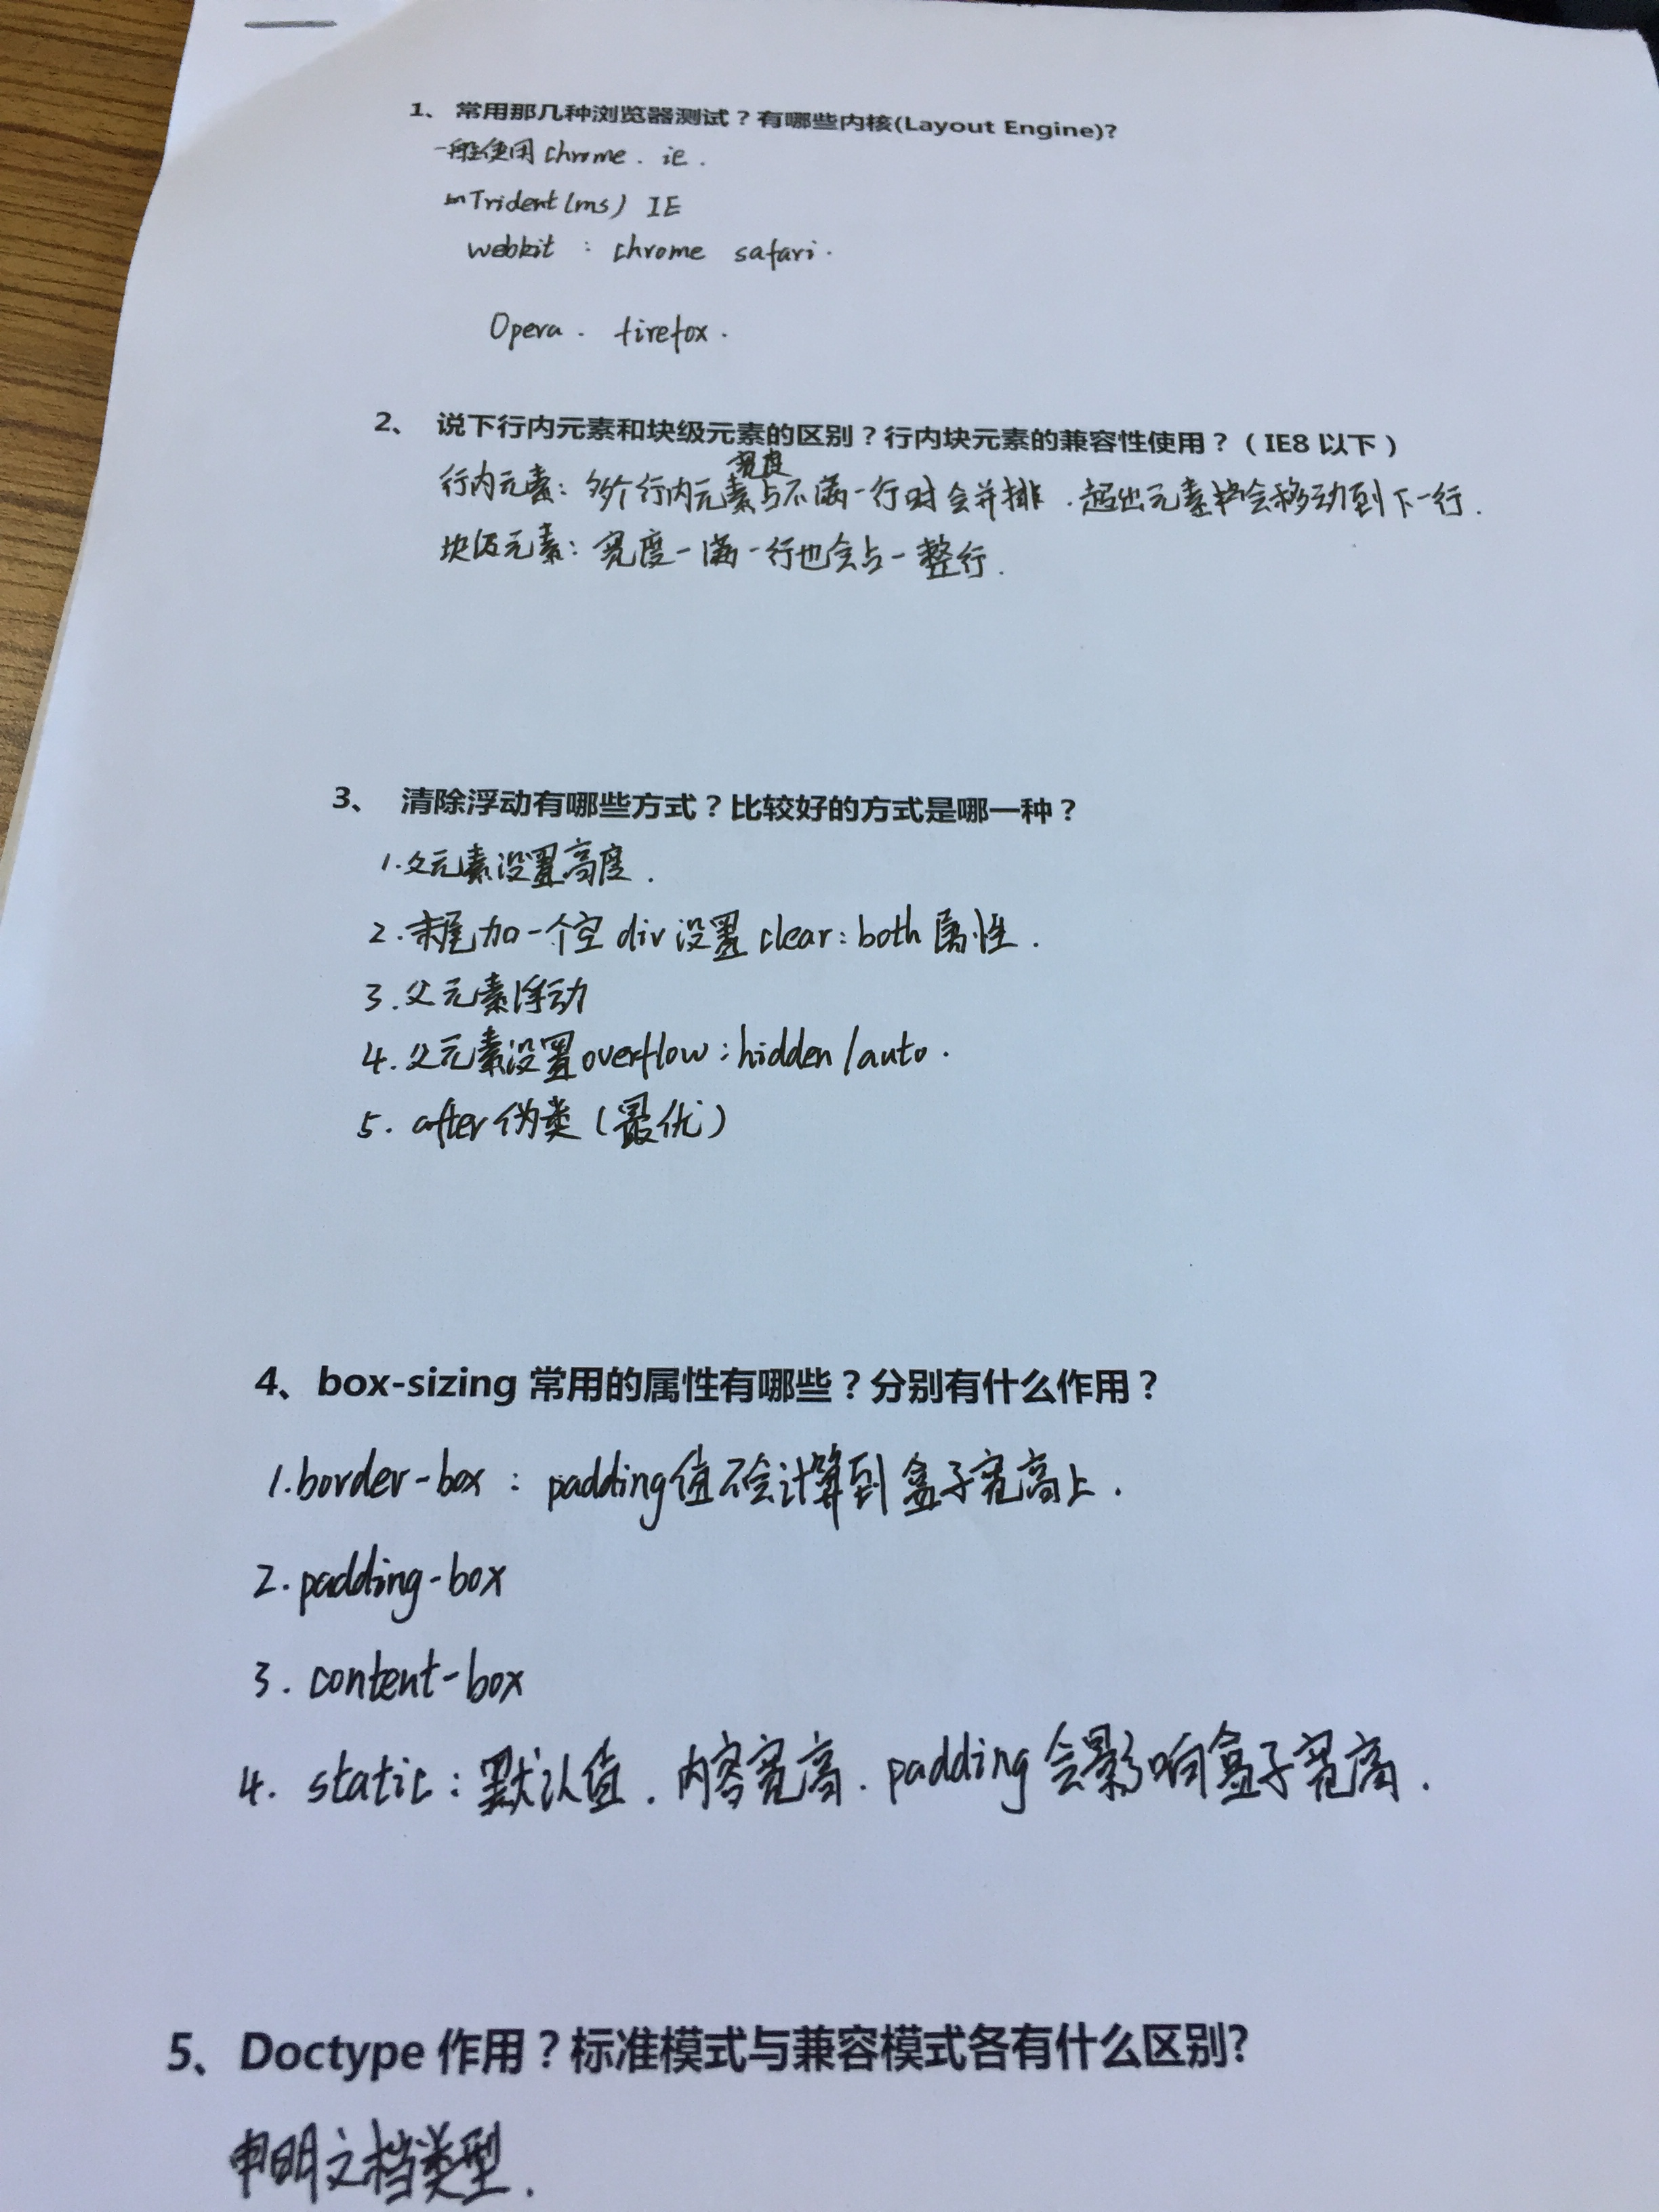 1、 常用那几种浏览器测试？有哪些内核(Layout Engine)?
一般使用 chrome . ie .
Trident (ms) IE
webkit : chrome safari .
Opera . firefox .
2、 说下行内元素和块级元素的区别？行内块元素的兼容性使用？（IE8 以下）
宽度
行内元素：多个行内元素占不满一行时会并排 . 超出元素会移动到下一行 .
块级元素：宽度一满一行也会占一整行 .
3、 清除浮动有哪些方式？比较好的方式是哪一种？
1. 父元素设置高度 .
2. 末尾加一个空 div 设置 clear: both 属性 .
3. 父元素浮动
4. 父元素设置 overflow : hidden / auto .
5. after 伪类 (最优)
4、box-sizing 常用的属性有哪些？分别有什么作用？
1. border-box : padding 值不会计算到盒子宽高上 .
2. padding-box
3. content-box
4. static : 默认值 . 内容宽高 . padding 会影响盒子宽高 .
5、Doctype 作用？标准模式与兼容模式各有什么区别?
申明文档类型 .